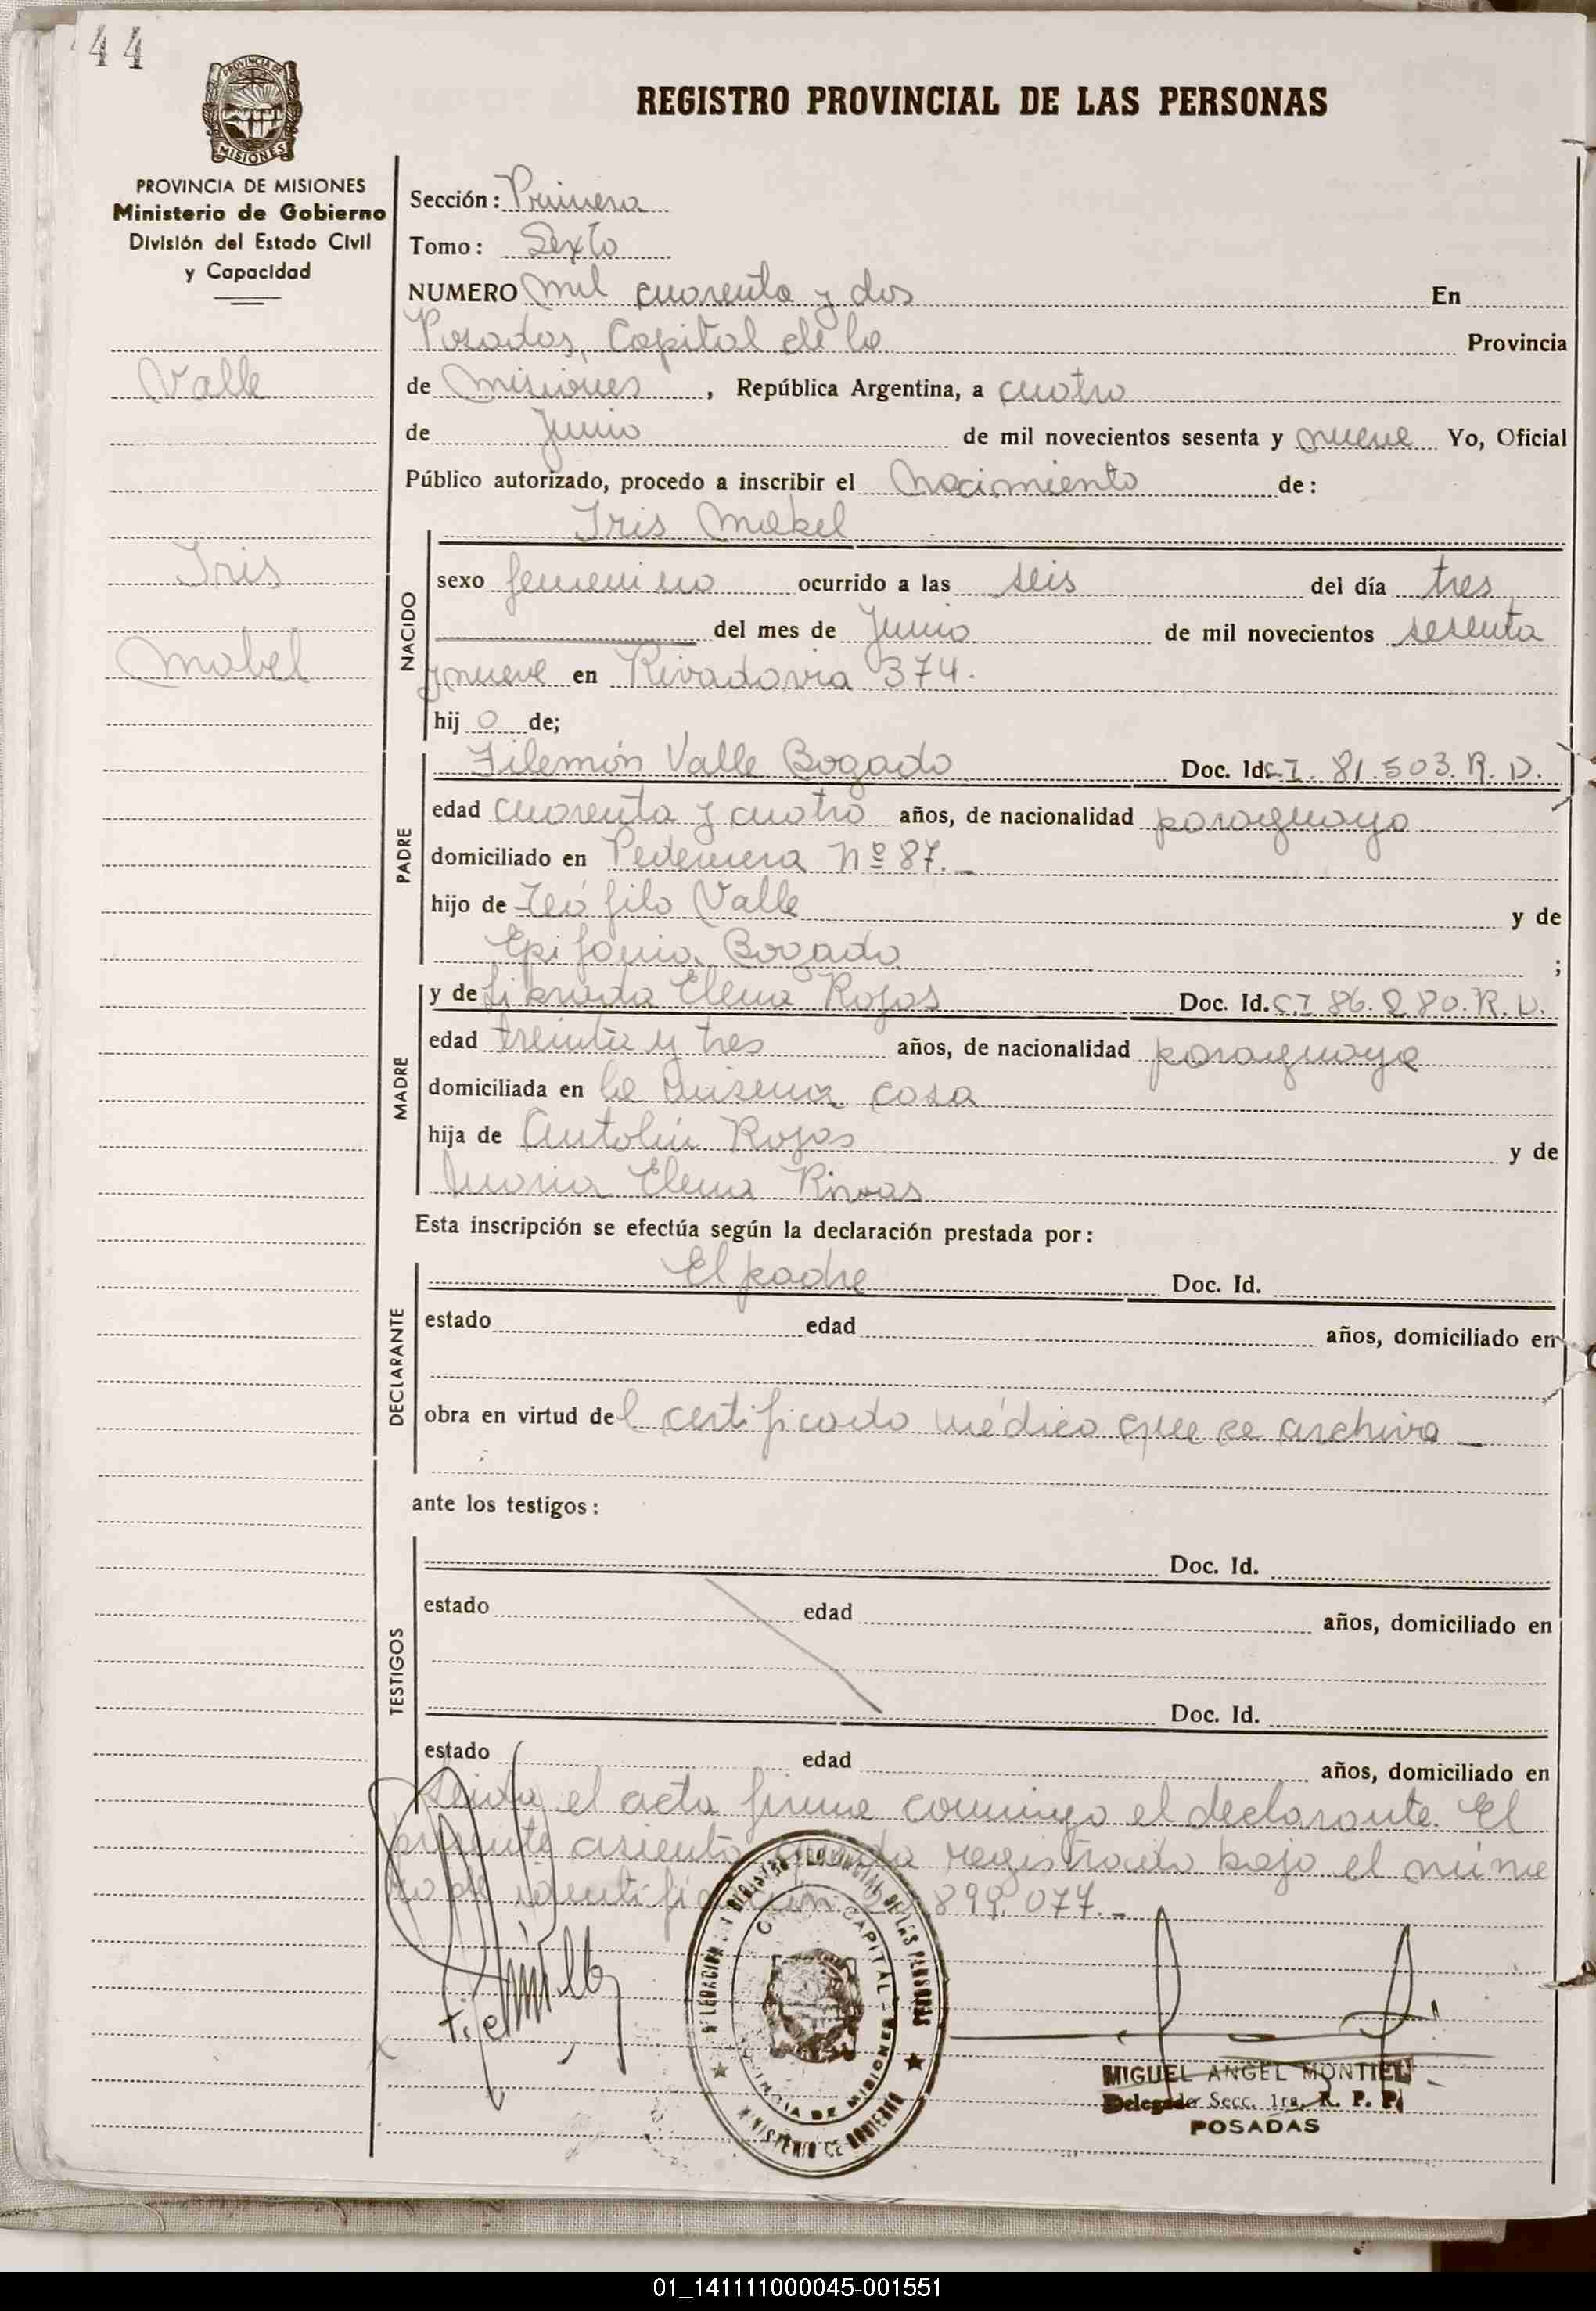 44
PROVINCIA DE
MISIONES
PROVINCIA DE MISIONES
Ministerio de Gobierno
División del Estado Civil
y Capacidad
Valle
Iris
Mabel
REGISTRO PROVINCIAL DE LAS PERSONAS
Sección: Primera
Tomo: Sexto
NUMERO mil cuarenta y dos En
Posadas, Capital de la Provincia
de Misiones, República Argentina, a cuatro
de Junio de mil novecientos sesenta y nueve Yo, Oficial
Público autorizado, procedo a inscribir el Nacimiento de:
Iris Mabel
NACIDO
sexo femenino ocurrido a las seis del día tres
del mes de Junio de mil novecientos sesenta
y nueve en Rivadavia 374.
hij a de;
PADRE
Filemón Valle Bogado Doc. Id. CI. 81.503. R. D.
edad cuarenta y cuatro años, de nacionalidad paraguayo
domiciliado en Pedernera Nº 87.
hijo de Teófilo Valle y de
Epifania Bogado ;
MADRE
y de Librada Elena Rojas Doc. Id. CI 86.280. R. D.
edad treinta y tres años, de nacionalidad paraguaya
domiciliada en la misma casa
hija de Antolín Rojas y de
María Elena Rivas
Esta inscripción se efectúa según la declaración prestada por:
DECLARANTE
El padre Doc. Id.
estado edad años, domiciliado en
obra en virtud del certificado médico que se archiva
ante los testigos:
TESTIGOS
Doc. Id.
estado edad años, domiciliado en
Doc. Id.
estado edad años, domiciliado en
Leída el acta firma conmigo el declarante. El
presente asiento queda registrado bajo el núme
ro de identificación 899.077.
DELEGACION DEL REGISTRO PROVINCIAL DE LAS PERSONAS
CAPITAL
PROVINCIA DE MISIONES
MINISTERIO DE GOBIERNO
MIGUEL ANGEL MONTIEL
Delegado Secc. 1ra. R. P. P.
POSADAS
01_141111000045-001551